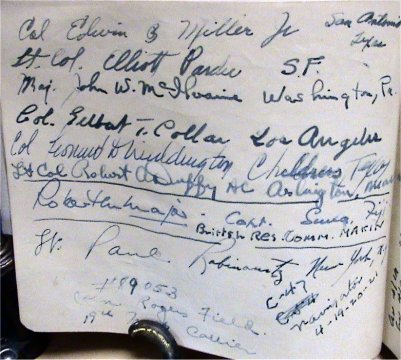 Col Edwin B Miller Jr San Antonio Texas
Lt. Col. Elliott Pardee S.F.
Maj. John W. McIlvaine Washington, Pa.
Col. Gilbert T. Collar Los Angeles
Col Leonard D Weddington, Childress Texas
Lt Col Robert A Duffy AC Arlington,
Capt. Suva, Fiji
British Res. Comm. Makin
Lt. Paul Rabinowitz New York,
Navigator
4-19-20-21
#189053
Rogers Field
19th